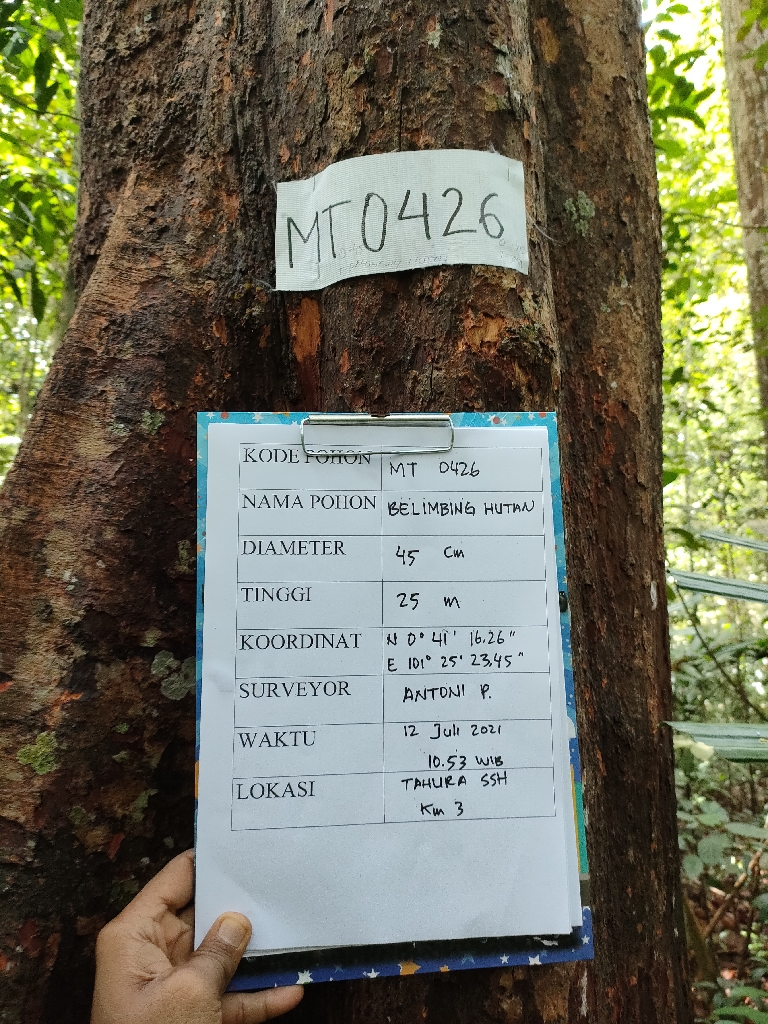 MT0426
KODE POHON MT 0426
NAMA POHON BELIMBING HUTAN
DIAMETER 45 Cm
TINGGI 25 m
KOORDINAT N 0° 41' 16.26"
E 101° 25' 23.45"
SURVEYOR ANTONI P.
WAKTU 12 Juli 2021
10.53 WIB
LOKASI TAHURA SSH
Km 3